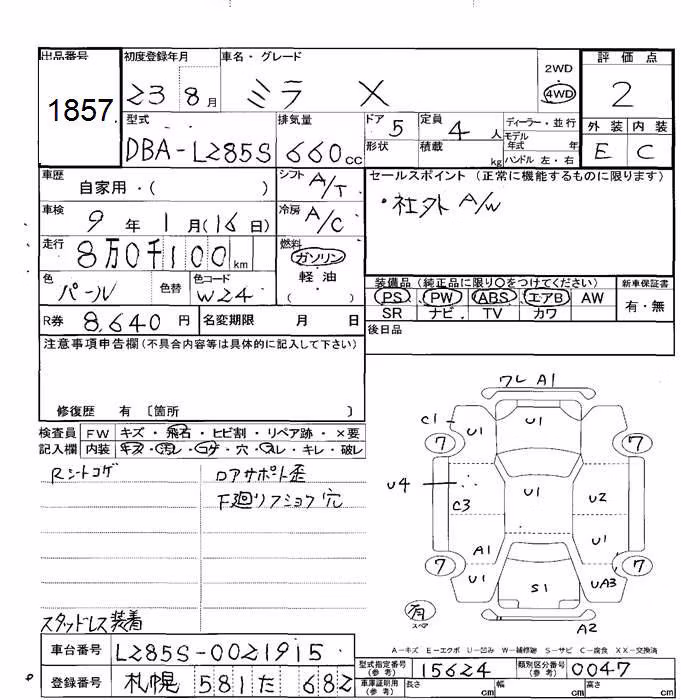 出品番号 初度登録年月 車名・グレード 評価点
1857 23 8月 ミラ X 2WD 4WD 2
型式 排気量 ドア 5 定員 4人 ディーラー・並行 外装 内装
DBA-L285S 660cc 形状 積載 kg モデル年式 年 ハンドル 左・右 E C
車歴 自家用・( ) シフト A/T セールスポイント (正常に機能するものに限ります)
車検 9年 1月(16日) 冷房 A/C ・社外 A/W
走行 8万0千100km 燃料 ガソリン 軽油 ( )
色 パール 色替 色コード W24 装備品(純正品に限り〇をつけてください) 新車保証書
PS PW ABS エアB AW 有・無
R券 8,640円 名変期限 月 日 SR ナビ TV カワ
後日品
注意事項申告欄(不具合内容等は具体的に記入して下さい)
修復歴 有 〔箇所 〕
検査員 FW キズ・飛石・ヒビ割・リペア跡・×要
記入欄 内装 キズ・汚レ・コゲ・穴・スレ・キレ・破レ
Rシートコゲ ロアサポート歪
F廻リフショク穴
スタッドレス装着
ワレ A1
C1 U1 U1 U1
7 7
U4 U1 U2
C3
A1 U1
7 7
U1 S1 UA3
有 スペア A2
A-キズ E-エクボ U-凹み W-補修跡 S-サビ C-腐食 XX-交換済
車台番号 L285S-0021915 型式指定番号(参考) 15624 類別区分番号(参考) 0047
登録番号 札幌 581 た 682 車庫証明用(参考) 長さ cm 幅 cm cm